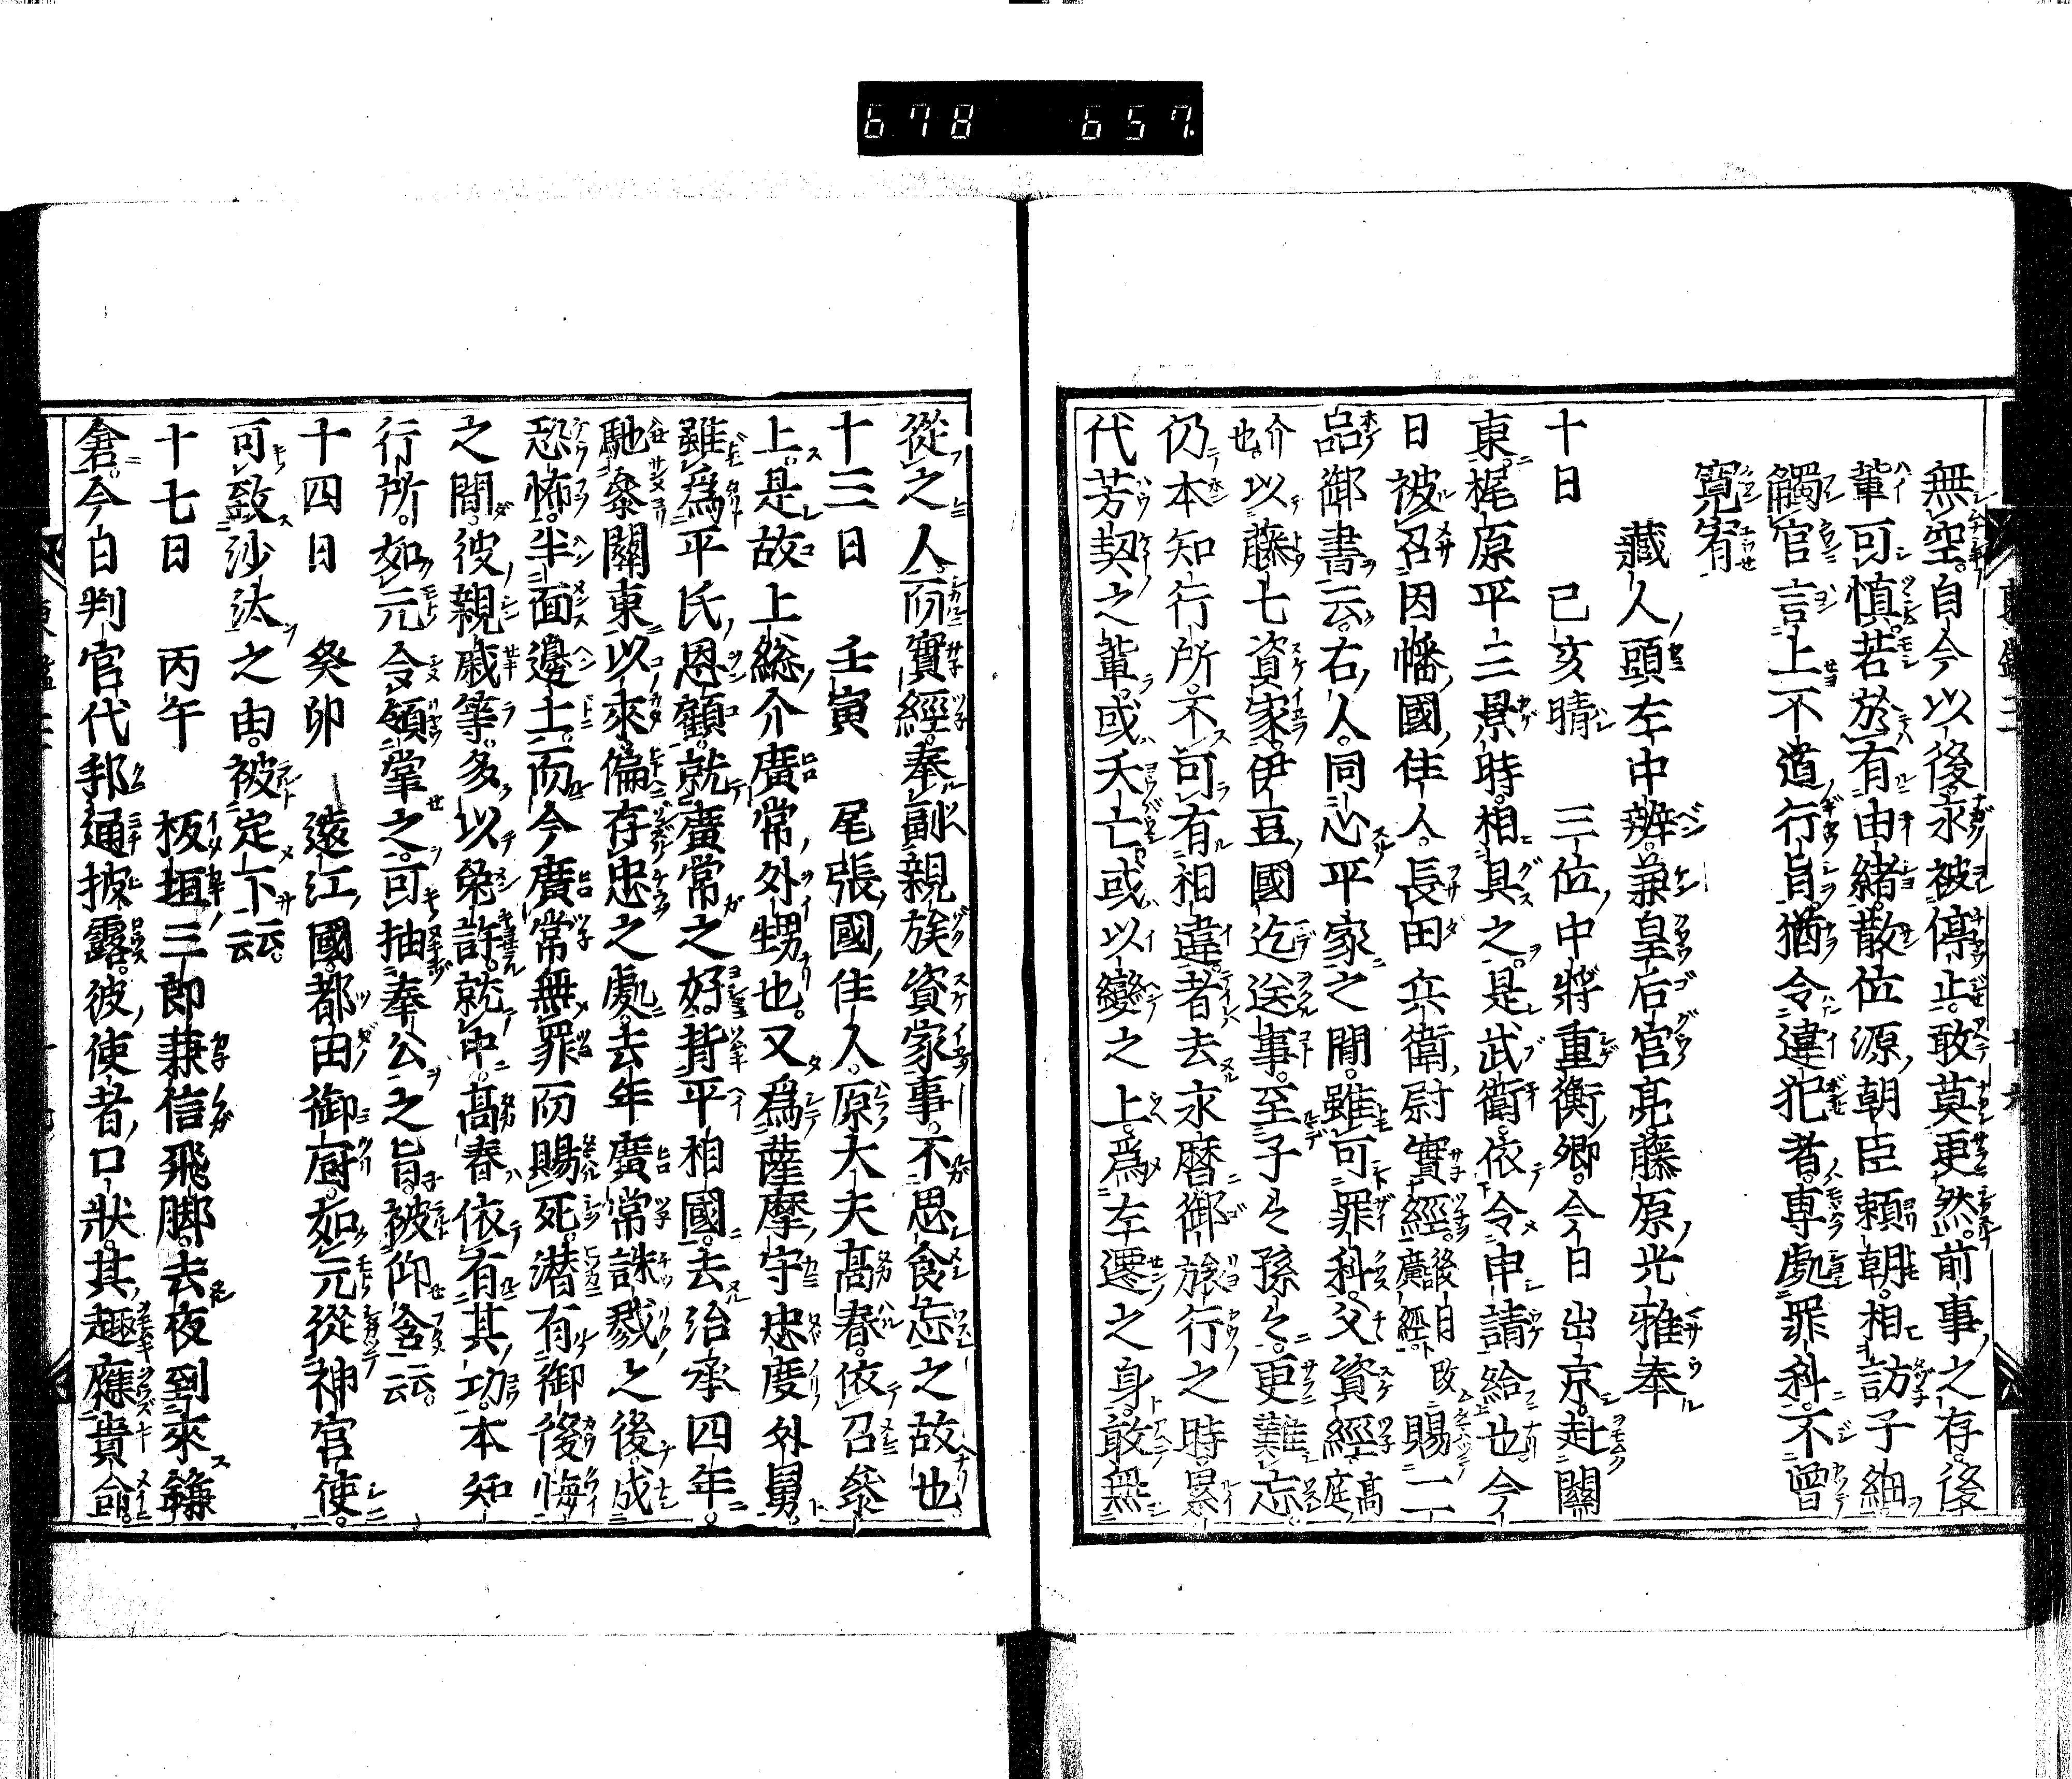 678 657
無空。自今以後。永被停止。敢莫更然。前事之存。後
輩可慎。若於有由緒。散位源朝臣頼朝。相訪子細
觸官言上。不道行旨。猶令違犯者。専處罪科。不曽
寛宥
蔵人頭左中辨。兼皇后宮亮。藤原光雅奉
十日 己亥晴 三位中將重衡卿。今日出京。赴關
東。梶原平三景時。相具之。是武衛。依令申請給也。今
日被召因幡國住人。長田兵衛尉實經。後日改廣經ト 賜二
品御書云。右人。同心平家之間。雖可罪科。父資經 高庭
介也 以藤七資家。伊豆國迄送事。至子々孫々。更難忘。
仍本知行所。不可有相違者。去永暦御旅行之時。累
代芳契之輩。或夭亡。或以變之上。為左遷之身。敢無
從之人。而實經。奉副親族資家事。不思食忘之故也
十三日 壬寅 尾張國住人。原大夫高春。依召參
上。是故上総介廣常外甥也。又為薩摩守忠度外舅。
雖為平氏恩顧。就廣常之好。背平相國。去治承四年。
馳參關東以來偏存忠之處。去年廣常誅戮之後。成
恐怖。半面邊土。而今廣常無罪而賜死。潜有御後悔
之間。彼親戚等。多以免許。就中。高春依有其功。本知
行所。如元令領掌之。可抽奉公之旨。被仰含云云。
十四日 癸卯 遠江國。都田御厨。如元從神官使。
可致沙汰之由。被定下云云。
十七日 丙午 板垣三郎兼信飛脚。去夜到來鎌
倉。今日判官代邦通披露。彼使者口狀。其趣應貴命。